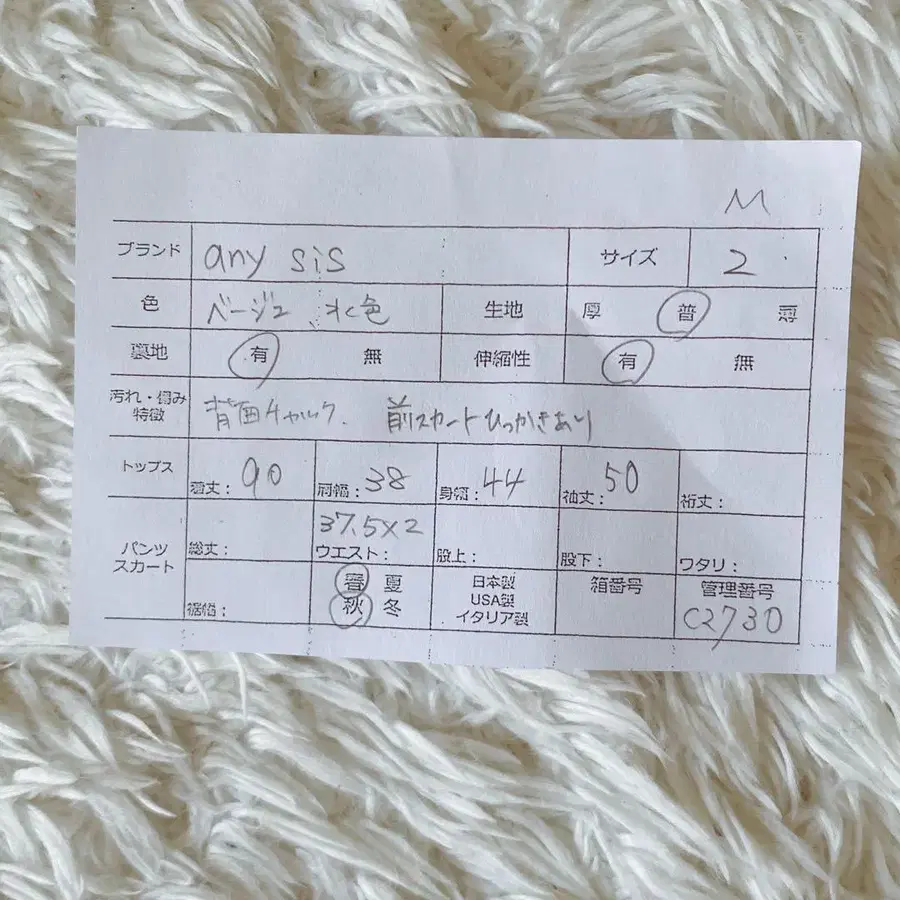 M
ブランド any sis サイズ 2
色 ベージュ 水色 生地 厚 普 薄
裏地 有 無 伸縮性 有 無
汚れ・傷み
特徴 背面チャック. 前スカートひっかきあり
トップス 着丈: 90 肩幅: 38 身幅: 44 袖丈: 50 裄丈:
パンツ
スカート
総丈: 37.5×2 ウエスト: 股上: 股下: ワタリ:
裾幅: 春 夏 秋 冬
日本製
USA製
イタリア製
箱番号
管理番号
C2730